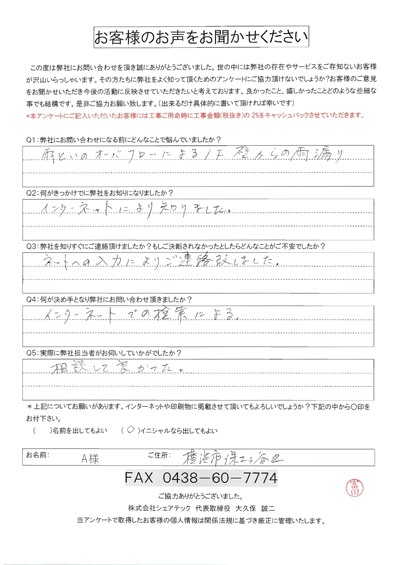 お客様のお声をお聞かせください
この度は弊社にお問い合わせを頂き誠にありがとうございました。世の中には弊社の存在やサービスをご存知ないお客様
が沢山いらっしゃいます。その方たちに弊社をよく知って頂くためのアンケートにご協力頂けないでしょうか?お客様のご意見
をお聞かせいただき今後の活動に反映させていただきたいと考えております。良かったこと、嬉しかったことどのような些細な
事でも結構です。是非ご協力お願い致します。(出来るだけ具体的に書いて頂ければ幸いです)
*本アンケートにご記入いただいたお客様には工事ご用命時に工事金額(税抜き)の 2%をキャッシュバックさせていただきます。
Q1:弊社にお問い合わせになる前にどんなことで悩んでいましたか?
雨といのオーバーフローによる1F壁からの雨漏り
Q2:何がきっかけでに弊社をお知りになりましたか?
インターネットにより知りました。
Q3:弊社を知りすぐにご連絡頂けましたか?もしご決断されなかったとしたらどんなことがご不安でしたか?
ネットへの入力によりご連絡致しました。
Q4:何が決め手となり弊社にお問い合わせ頂きましたか?
インターネットでの検索による。
Q5:実際に弊社担当者がお伺いしていかがでしたか?
相談して良かった。
*上記についてお願いがあります。インターネットや印刷物に掲載させて頂いてもよろしいでしょうか?下記の中から○印を
お付下さい。
( )名前を出してもよい (○)イニシャルなら出してもよい
お名前: A様 ご住所: 横浜市保土ヶ谷区
FAX 0438-60-7774
ご協力ありがとうございました。
株式会社シェアテック 代表取締役 大久保 誠二
当アンケートで取得したお客様の個人情報は関係法規に基づき厳正に管理いたします。